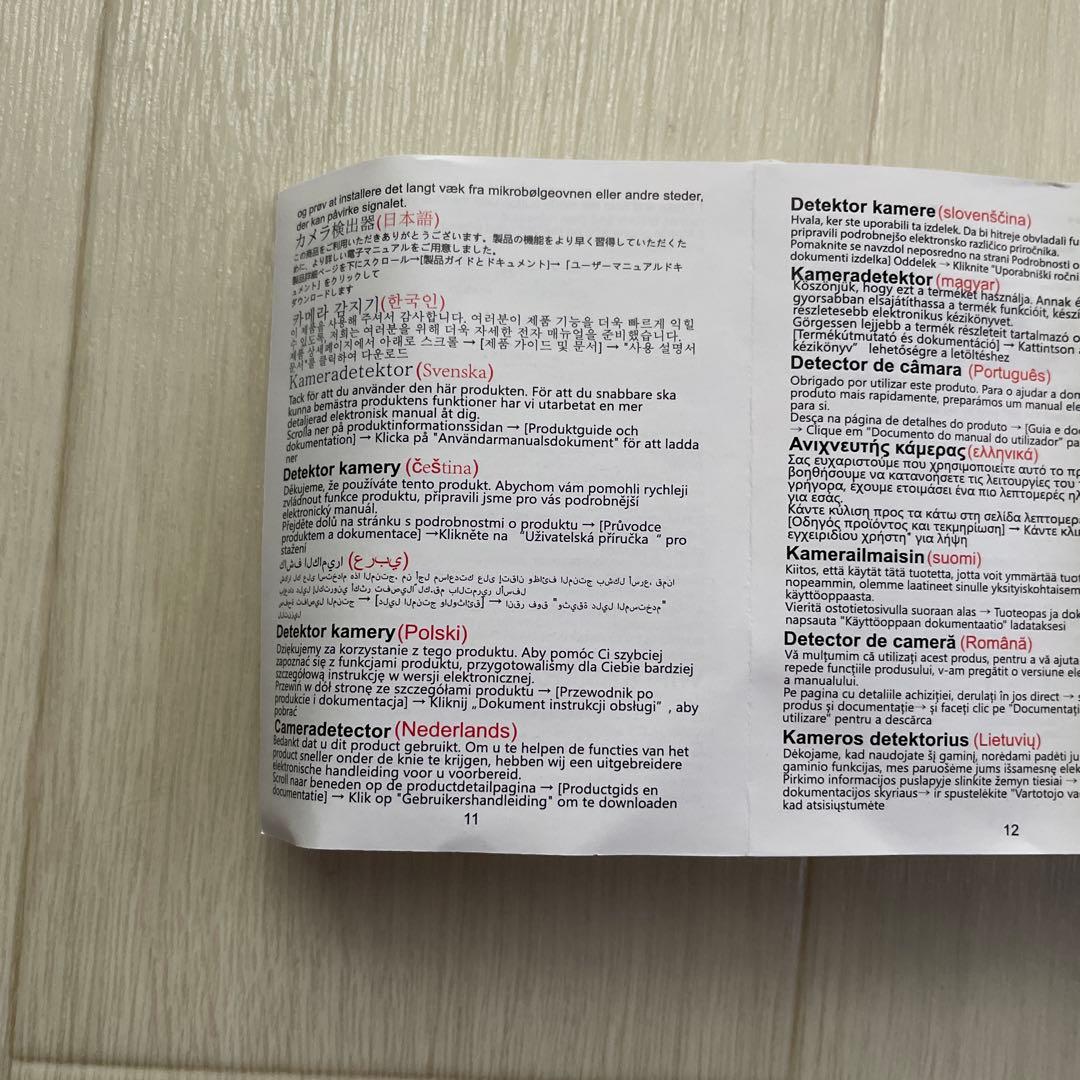 og prøv at installere det langt væk fra mikrobølgeovnen eller andre steder,
der kan påvirke signalet.
カメラ検出器(日本語)
この商品をご利用いただきありがとうございます。製品の機能をより早く習得していただくた
めに、より詳しい電子マニュアルをご用意しました。
製品詳細ページを下にスクロール→[製品ガイドとドキュメント]→「ユーザーマニュアルドキ
ュメント」をクリックして
ダウンロードします
카메라 감지기(한국인)
이 제품을 사용해 주셔서 감사합니다. 여러분이 제품 기능을 더욱 빠르게 익힐
수 있도록, 저희는 여러분을 위해 더욱 자세한 전자 매뉴얼을 준비했습니다.
제품 상세페이지에서 아래로 스크롤 → [제품 가이드 및 문서] → "사용 설명서
문서"를 클릭하여 다운로드
Kameradetektor (Svenska)
Tack för att du använder den här produkten. För att du snabbare ska
kunna bemästra produktens funktioner har vi utarbetat en mer
detaljerad elektronisk manual åt dig.
Scrolla ner på produktinformationssidan → [Produktguide och
dokumentation] → Klicka på "Användarmanualsdokument" för att ladda
ner
Detektor kamery (čeština)
Děkujeme, že používáte tento produkt. Abychom vám pomohli rychleji
zvládnout funkce produktu, připravili jsme pro vás podrobnější
elektronický manuál.
Přejděte dolů na stránku s podrobnostmi o produktu → [Průvodce
produktem a dokumentace] →Klikněte na "Uživatelská příručka " pro
stažení
كاشف الكاميرا (عربي)
شكرا لك على استخدام هذا المنتج، من أجل مساعدتك على إتقان وظائف المنتج بشكل أسرع، قمنا
بإعداد دليل إلكتروني أكثر تفصيلا لك.قم بالتمرير لأسفل
صفحة تفاصيل المنتج → [دليل المنتج والوثائق] → انقر فوق "وثيقة دليل المستخدم"
للتنزيل
Detektor kamery(Polski)
Dziękujemy za korzystanie z tego produktu. Aby pomóc Ci szybciej
zapoznać się z funkcjami produktu, przygotowaliśmy dla Ciebie bardziej
szczegółową instrukcję w wersji elektronicznej.
Przewiń w dół stronę ze szczegółami produktu → [Przewodnik po
produkcie i dokumentacja] → Kliknij „Dokument instrukcji obsługi" , aby
pobrać
Cameradetector(Nederlands)
Bedankt dat u dit product gebruikt. Om u te helpen de functies van het
product sneller onder de knie te krijgen, hebben wij een uitgebreidere
elektronische handleiding voor u voorbereid.
Scroll naar beneden op de productdetailpagina → [Productgids en
documentatie] → Klik op "Gebruikershandleiding" om te downloaden
11
Detektor kamere(slovenščina)
Hvala, ker ste uporabili ta izdelek. Da bi hitreje obvladali
pripravili podrobnejšo elektronsko različico priročnika.
Pomaknite se navzdol neposredno na strani Podrobnosti o
dokumenti izdelka] Oddelek → Kliknite "Uporabniški
Kameradetektor (magyar)
Köszönjük, hogy ezt a terméket használja. Annak
gyorsabban elsajátíthassa a termék funkcióit,
részletesebb elektronikus kézikönyvet.
Görgessen lejjebb a termék részleteit tartalmazó
[Termékútmutató és dokumentáció] → Kattintson
kézikönyv" lehetőségre a letöltéshez
Detector de câmara (Português)
Obrigado por utilizar este produto. Para o ajudar a
produto mais rapidamente, preparámos um manual
para si.
Desça na página de detalhes do produto → [Guia e
→ Clique em "Documento do manual do utilizador"
Ανιχνευτής κάμερας(ελληνικά)
Σας ευχαριστούμε που χρησιμοποιείτε αυτό το
βοηθήσουμε να κατανοήσετε τις λειτουργίες του
γρήγορα, έχουμε ετοιμάσει ένα πιο λεπτομερές
για εσάς.
Κάντε κύλιση προς τα κάτω στη σελίδα
[Οδηγός προϊόντος και τεκμηρίωση] → Κάντε
εγχειριδίου χρήστη" για λήψη
Kamerailmaisin(suomi)
Kiitos, että käytät tätä tuotetta, jotta voit ymmärtää
nopeammin, olemme laatineet sinulle
käyttöoppaasta.
Vieritä ostotietosivulla suoraan alas → Tuoteopas ja
napsauta "Käyttöoppaan dokumentaatio" ladataksesi
Detector de cameră (Română)
Vă mulțumim că utilizați acest produs, pentru a vă ajuta
repede funcțiile produsului, v-am pregătit o versiune
a manualului.
Pe pagina cu detaliile achiziției, derulați în jos direct →
produs și documentație→ și faceți clic pe
utilizare" pentru a descărca
Kameros detektorius (Lietuvių)
Dėkojame, kad naudojate šį gaminį, norėdami padėti
gaminio funkcijas, mes paruošėme jums išsamesnę
Pirkimo informacijos puslapyje slinkite žemyn tiesiai →
dokumentacijos skyriaus→ ir spustelėkite "Vartotojo
kad atsisiųstumėte
12